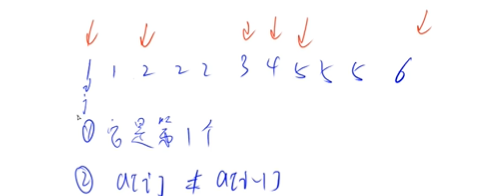 1 1 2 2 2 3 4 5 5 5 6
j
① 它是第1个
② a[j] ≠ a[j-1]